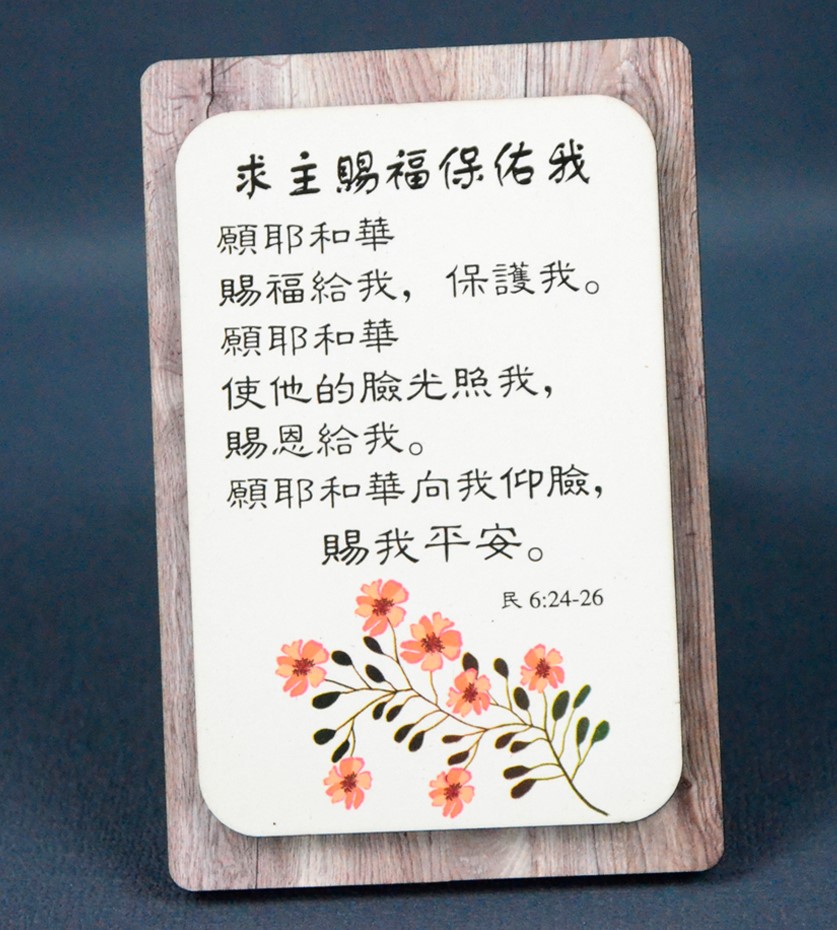 求主賜福保佑我
願耶和華
賜福給我，保護我。
願耶和華
使他的臉光照我，
賜恩給我。
願耶和華向我仰臉，
賜我平安。
民 6:24-26